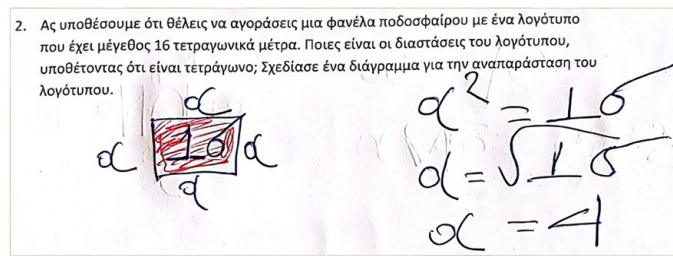 2. Ας υποθέσουμε ότι θέλεις να αγοράσεις μια φανέλα ποδοσφαίρου με ένα λογότυπο
που έχει μέγεθος 16 τετραγωνικά μέτρα. Ποιες είναι οι διαστάσεις του λογότυπου,
υποθέτοντας ότι είναι τετράγωνο; Σχεδίασε ένα διάγραμμα για την αναπαράσταση του
λογότυπου.
α
α 16 α
α
α² = 16
α = √16
α = 4